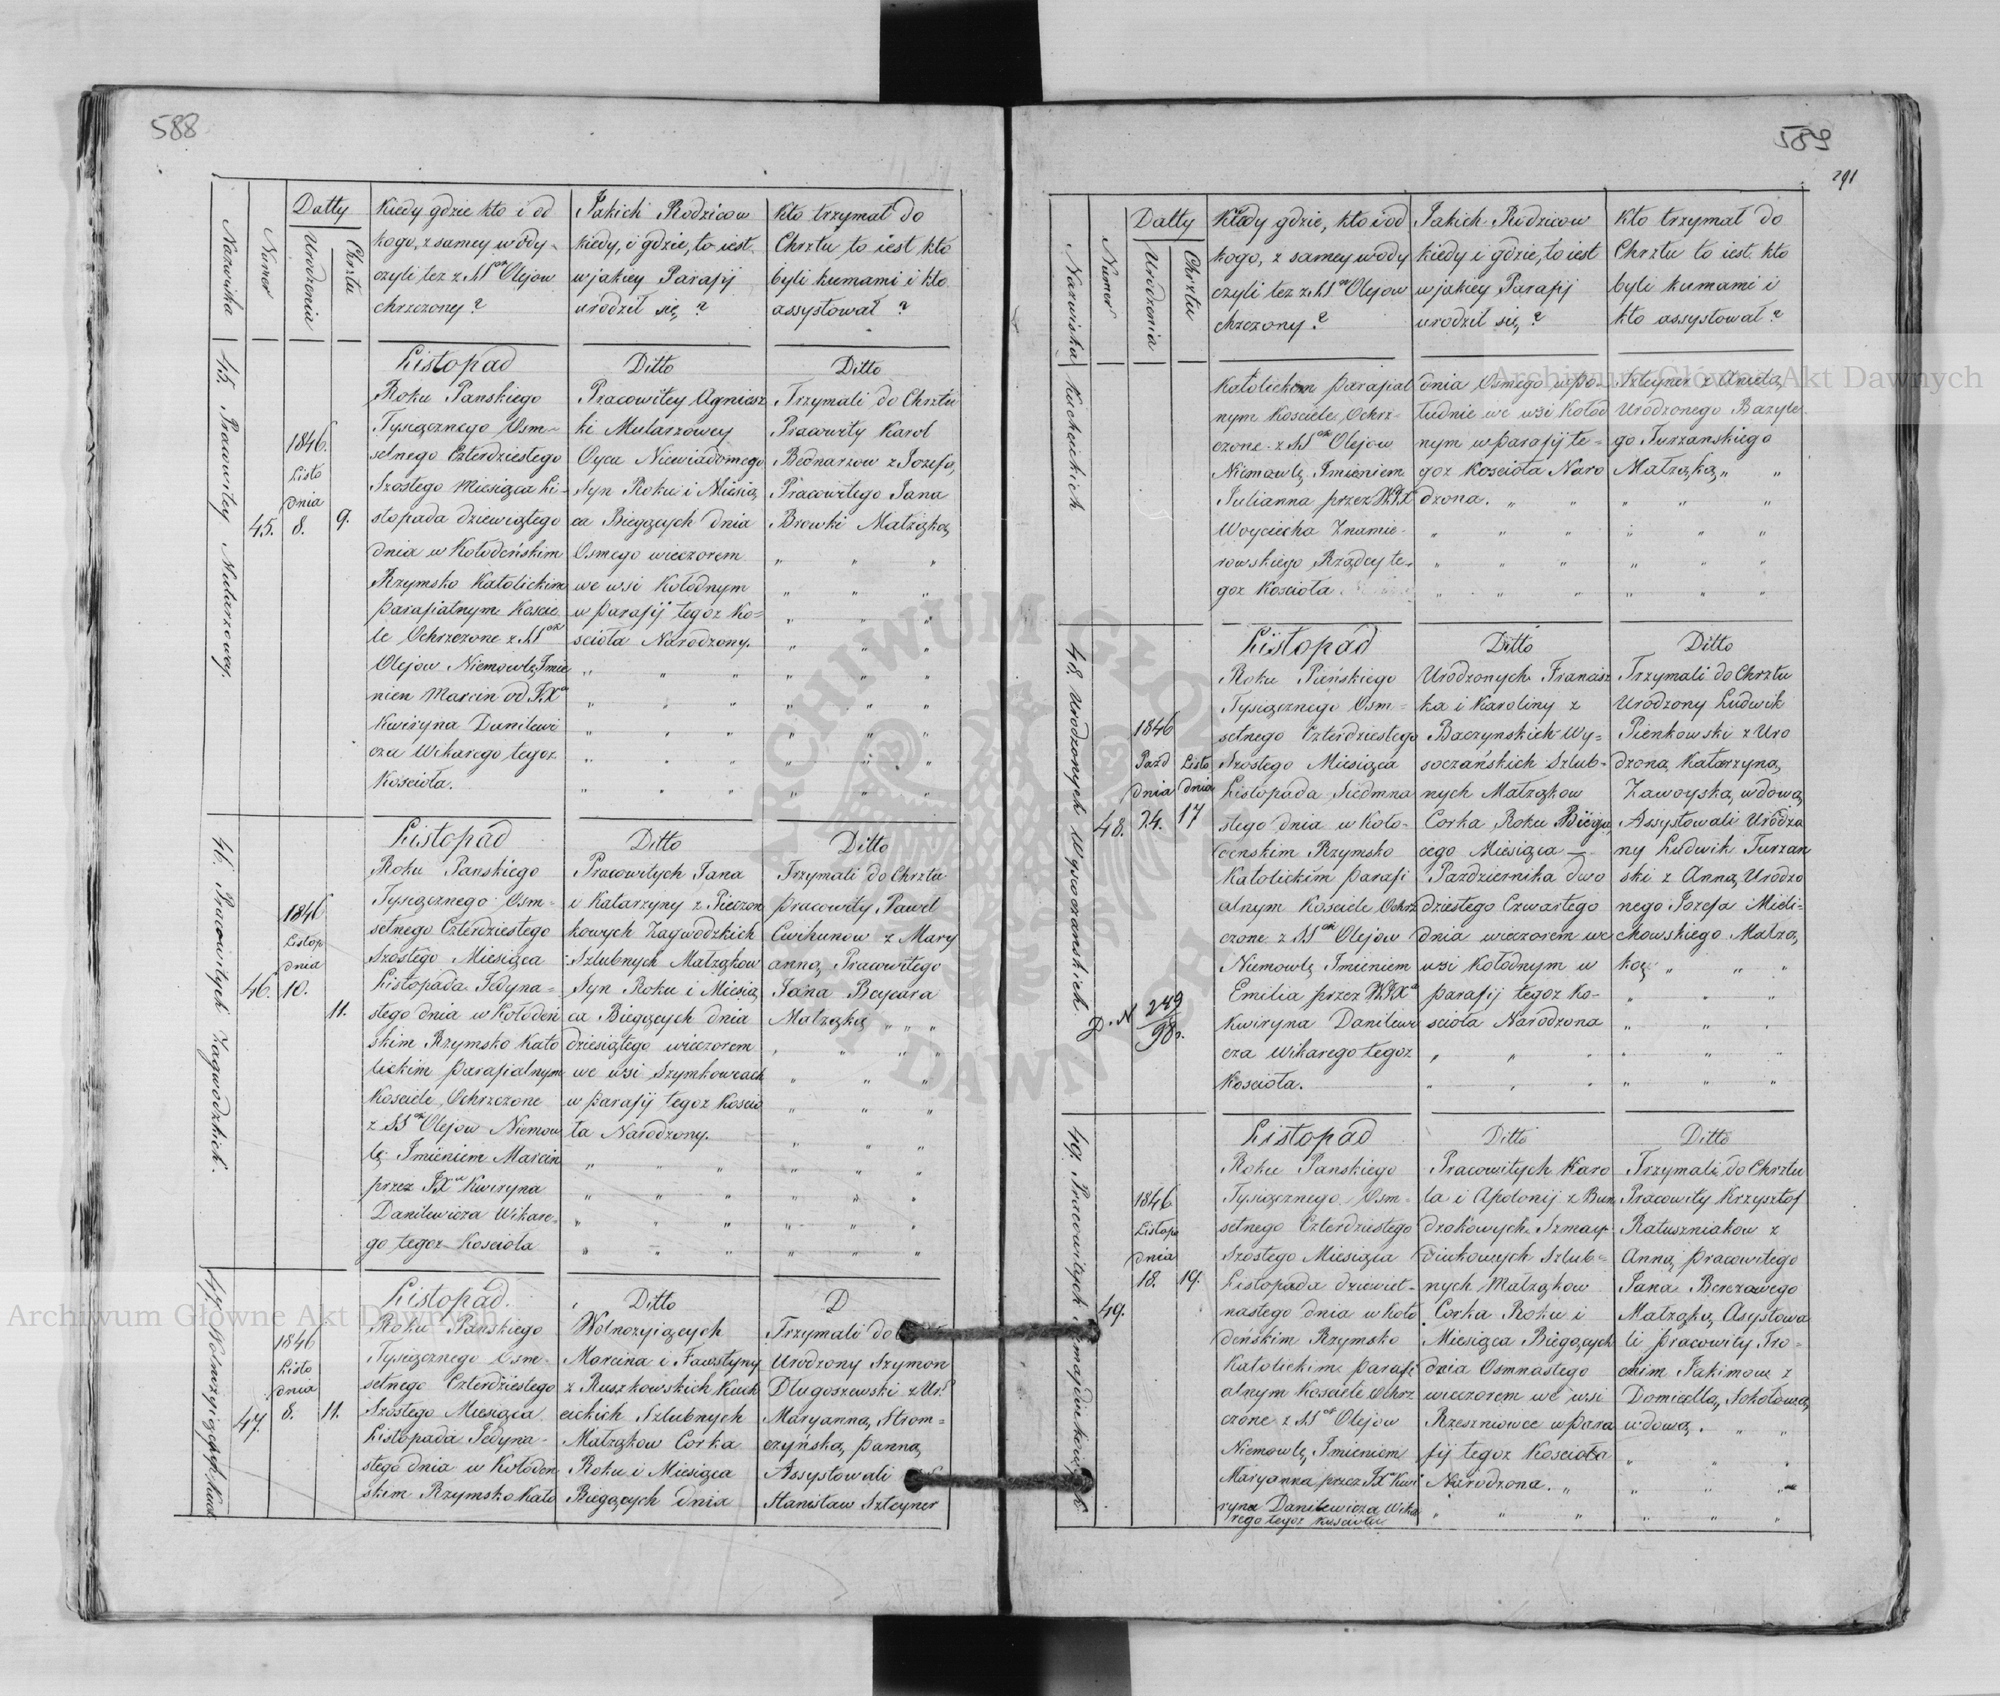 588
Nazwiska
Numer
Datty
Urodzenia
Chrztu
Kiedy gdzie kto i od
kogo, z samey wody
czyli tez z SS Olejow
chrzczony?
Jakich Rodzicow
kiedy, i gdzie, to iest
w jakiey Parafij
urodził się?
Kto trzymał do
Chrztu to iest kto
byli kumami i kto
assystował?
45. Pracowitey Mularzowey.
45.
1846.
Listo
dnia
8.
9.
Listopad
Roku Panskiego
Tysiącznego Osm-
setnego Czterdziestego
Szostego Miesiąca Li-
stopada dziewiątego
dnia w Kołodeńskim
Rzymsko Katolickim
parafialnym Koscie
le Ochrzczone z SS
Olejow Niemowlę Jmie
niem Marcin od JX
Kwiryna Danilewi
cza Wikarego tegoz
Kościoła.
Ditto
Pracowitey Agniesz
ki Mularzowey
Oyca Niewiadomego
Syn Roku i Miesią
ca Bieżących dnia
Osmego wieczorem
we wsi Kołodnym
w parafij tegoz Ko=
scioła Narodzony.
Ditto
Trzymali do Chrztu
Pracowity Karol
Bednarzow z Jozefą,
Pracowitego Jana
Browki Małżąką,
46. Pracowitych Zagwodzkich.
46.
1846
Listop
dnia
10.
11.
Listopad
Roku Panskiego
Tysiącznego Osm=
setnego Czterdziestego
Szostego Miesiąca
Listopada Jedyna=
stego dnia w Kołodeń
skim Rzymsko Kato
lickim parafialnym
Kosciele Ochrzczone
z SS Olejow Niemow
lę Jmieniem Marcin
przez JX Kwiryna
Danilewicza Wikare=
go tegoz Koscioła
Ditto
Pracowitych Jana
i Katarzyny z Pieczon
kowych Zagwodzkich
Szlubnych Małżąkow
Syn Roku i Miesią
ca Bieżących dnia
dziesiątego wieczorem
we wsi Szymkowcach
w parafij tegoz Koscio
ła Narodzony.
Ditto
Trzymali do Chrztu
pracowity Paweł
Cwikunow z Mary
anną, Pracowitego
Jana Bojcara
Małżąką
47.
1846
Listo
dnia
8.
11.
Listopad.
Roku Panskiego
Tysiącznego Osm=
setnego Czterdziestego
Szostego Miesiąca
Listopada Jedyna-
stego dnia w Kołodeń
skim Rzymsko Kato
Ditto
Wolnożyiących
Marcina i Faustyny
z Ruszkowskich Kuch
cickich Szlubnych
Małżąkow Corka
Roku i Miesiąca
Bieżących dnia
D
Trzymali do
Urodzony Szymon
Długoszewski z Ur.
Maryanną, Strom=
czyńską, panną,
Assystowali
Stanisław Szteyner
589
291
Nazwiska
Numer
Datty
Urodzenia
Chrztu
Kiedy gdzie, kto i od
kogo, z samey wody
czyli tez z SS Olejow
chrzczony?
Jakich Rodzicow
kiedy i gdzie, to iest
w jakiey Parafij
urodził się?
Kto trzymał do
Chrztu to iest kto
byli kumami i
kto assystował?
Kuchcickich
Katolickim parafial
nym Kosciele Ochrz-
czone z SS Olejow
Niemowlę Jmieniem
Julianna przez WJX
Woyciecha Znamie-
rowskiego Rządcy te-
goz Koscioła.
dnia Osmego wpo-
łudnie we wsi Kołod
nym w parafij te=
goz Koscioła Naro
dzona.
Szteyner z Anielą,
Urodzonego Bazyle-
go Turzanskiego
Małżąką,
48. Urodzonych Wysoczanskich.
48.
1846
Pazd
dnia
24.
Listo
dnia
17
D. N 249
98.
Listopad
Roku Pańskiego
Tysiącznego Osm=
setnego Czterdziestego
Szostego Miesiąca
Listopada Siedmna
stego dnia w Koło-
denskim Rzymsko
Katolickim parafi
alnym Kosciele Ochrz
czone z SS Olejow
Niemowlę Jmieniem
Emilia przez WJX
Kwiryna Danilewi
cza Wikarego tegoz
Koscioła.
Ditto
Urodzonych Francisz
ka i Karoliny z
Baczynskich Wy=
soczańskich Szlub-
nych Małżąkow
Corka Roku Bieżą,
cego Miesiąca
Pazdziernika dwo
dziestego Czwartego
dnia wieczorem we
wsi Kołodnym w
parafij tegoz Ko-
scioła Narodzona
Ditto
Trzymali do Chrztu
Urodzony Ludwik
Pienkowski z Uro
dzoną Katarzyną,
Zawoyską, wdową,
Assystowali Urodzo
ny Ludwik Turzan
ski z Anną, Urodzo
nego Jozefa Mieli-
chowskiego Małżą,
ką
49.
1846
Listop
dnia
18.
19.
Listopad
Roku Panskiego
Tysiącznego Osm=
setnego Czterdziestego
Szostego Miesiąca
Listopada dziewiet-
nastego dnia w Koło
deńskim Rzymsko
Katolickim parafi
alnym Kosciele Ochrz
czone z SS Olejow
Niemowlę Jmieniem
Maryanna przez JX Kwi
ryna Danilewicza Wika
rego tegoz Kosciołu
Ditto
Pracowitych Karo
la i Apolonij z Bun
drokowych Szmay-
dziukowych Szlub=
nych Małżąkow
Corka Roku i
Miesiąca Bieżących
dnia Osmnastego
wieczorem we wsi
Rzeszniowce w para
fij tegoz Koscioła
Narodzona.
Ditto
Trzymali do Chrztu
Pracowity Krzysztof
Ratuszniakow z
Anną pracowitego
Jana Berezowego
Małżąką, Asystowa
li pracowity Tro-
chim Jakimow z
Domicellą, Sokołową,
wdową.
Archiwum Główne Akt Dawnych
Archiwum Główne Akt Dawnych
ARCHIWUM GŁÓWNE AKT DAWNYCH